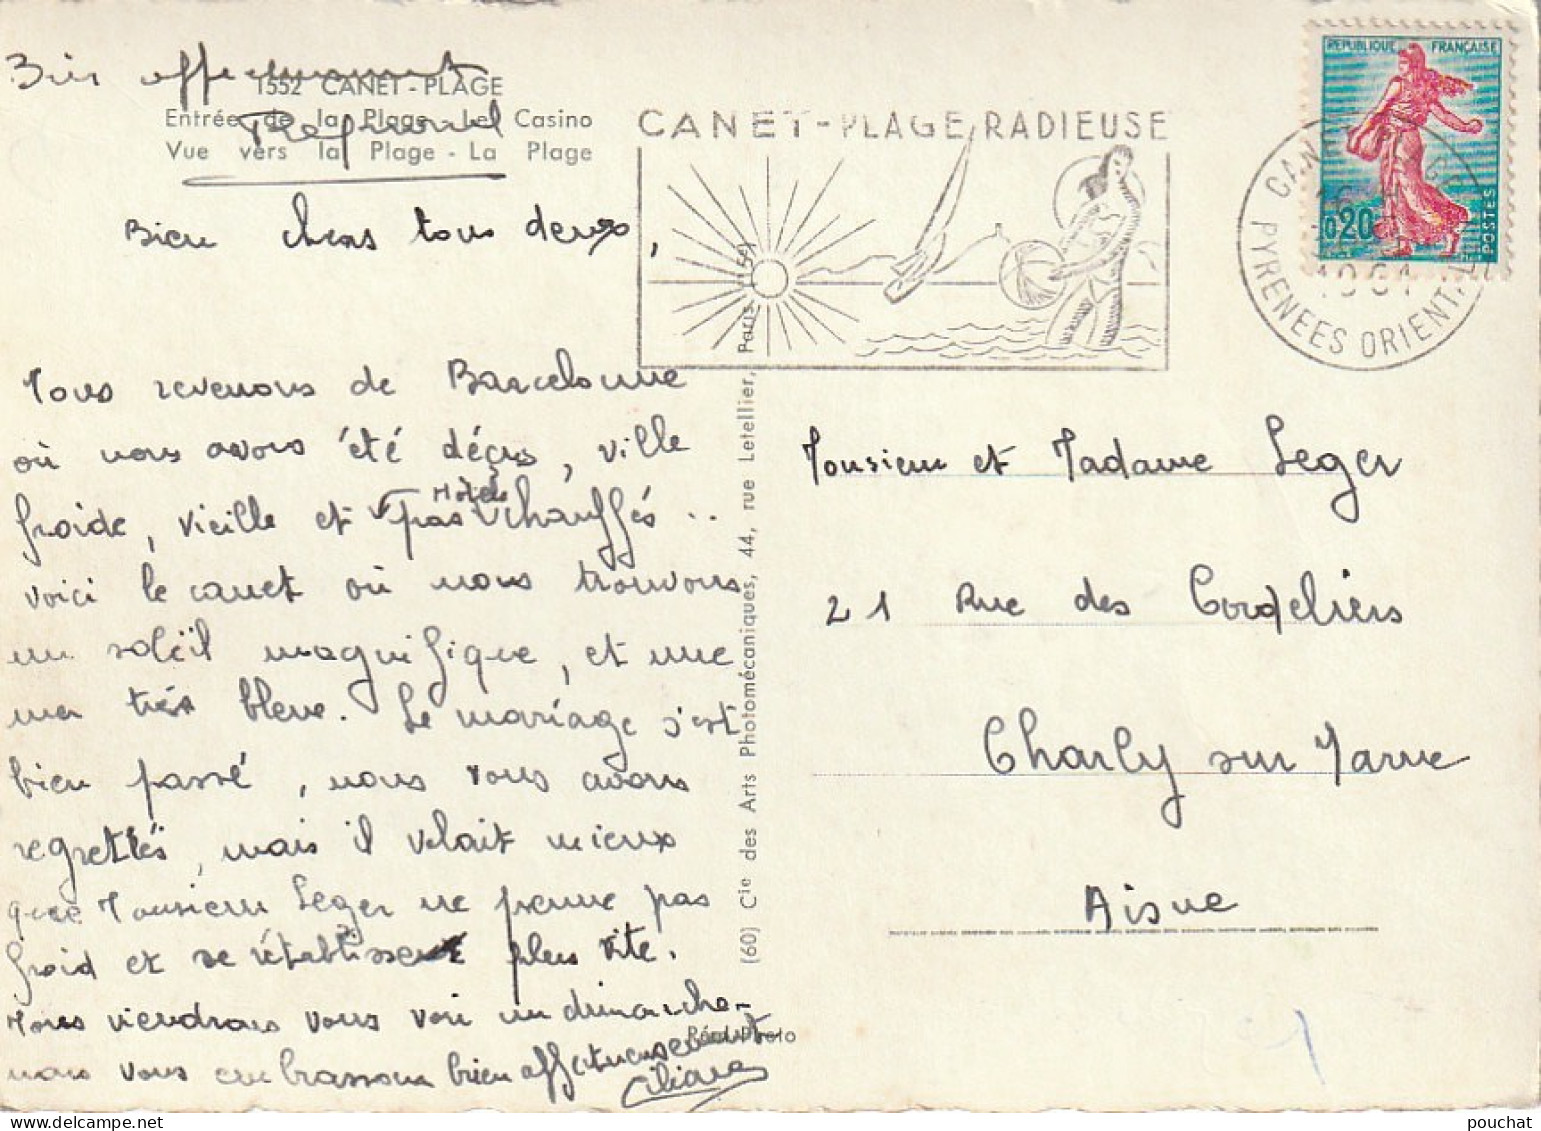 Bien affectueusement
1552 CANET - PLAGE
Entrée de la Plage - Le Casino
Vue vers la Plage - La Plage
Bien chers tous deux,
Nous revenons de Barcelonne
où nous avons été déçus, ville
froide, vieille et Hôtels pas chauffés ..
voici le canet où nous trouvons
un soleïl magnifique, et une
mer très bleue. Le mariage s'est
bien passé, nous vous avons
regrettés, mais il valait mieux
que Monsieur Leger ne prenne pas
froid et se rétablisse plus vite.
Nous viendrons vous voir un dimanche
nous vous embrassons bien affectueusement
Liliane
Réal-Photo
(60) Cie des Arts Photomécaniques, 44, rue Letellier, Paris (15e)
CANET-PLAGE RADIEUSE
PYRENEES ORIENTALES
1961
REPUBLIQUE FRANÇAISE
0,20
POSTES
Monsieur et Madame Leger
21 Rue des Cordeliers
Charly sur Marne
Aisne
pouchat